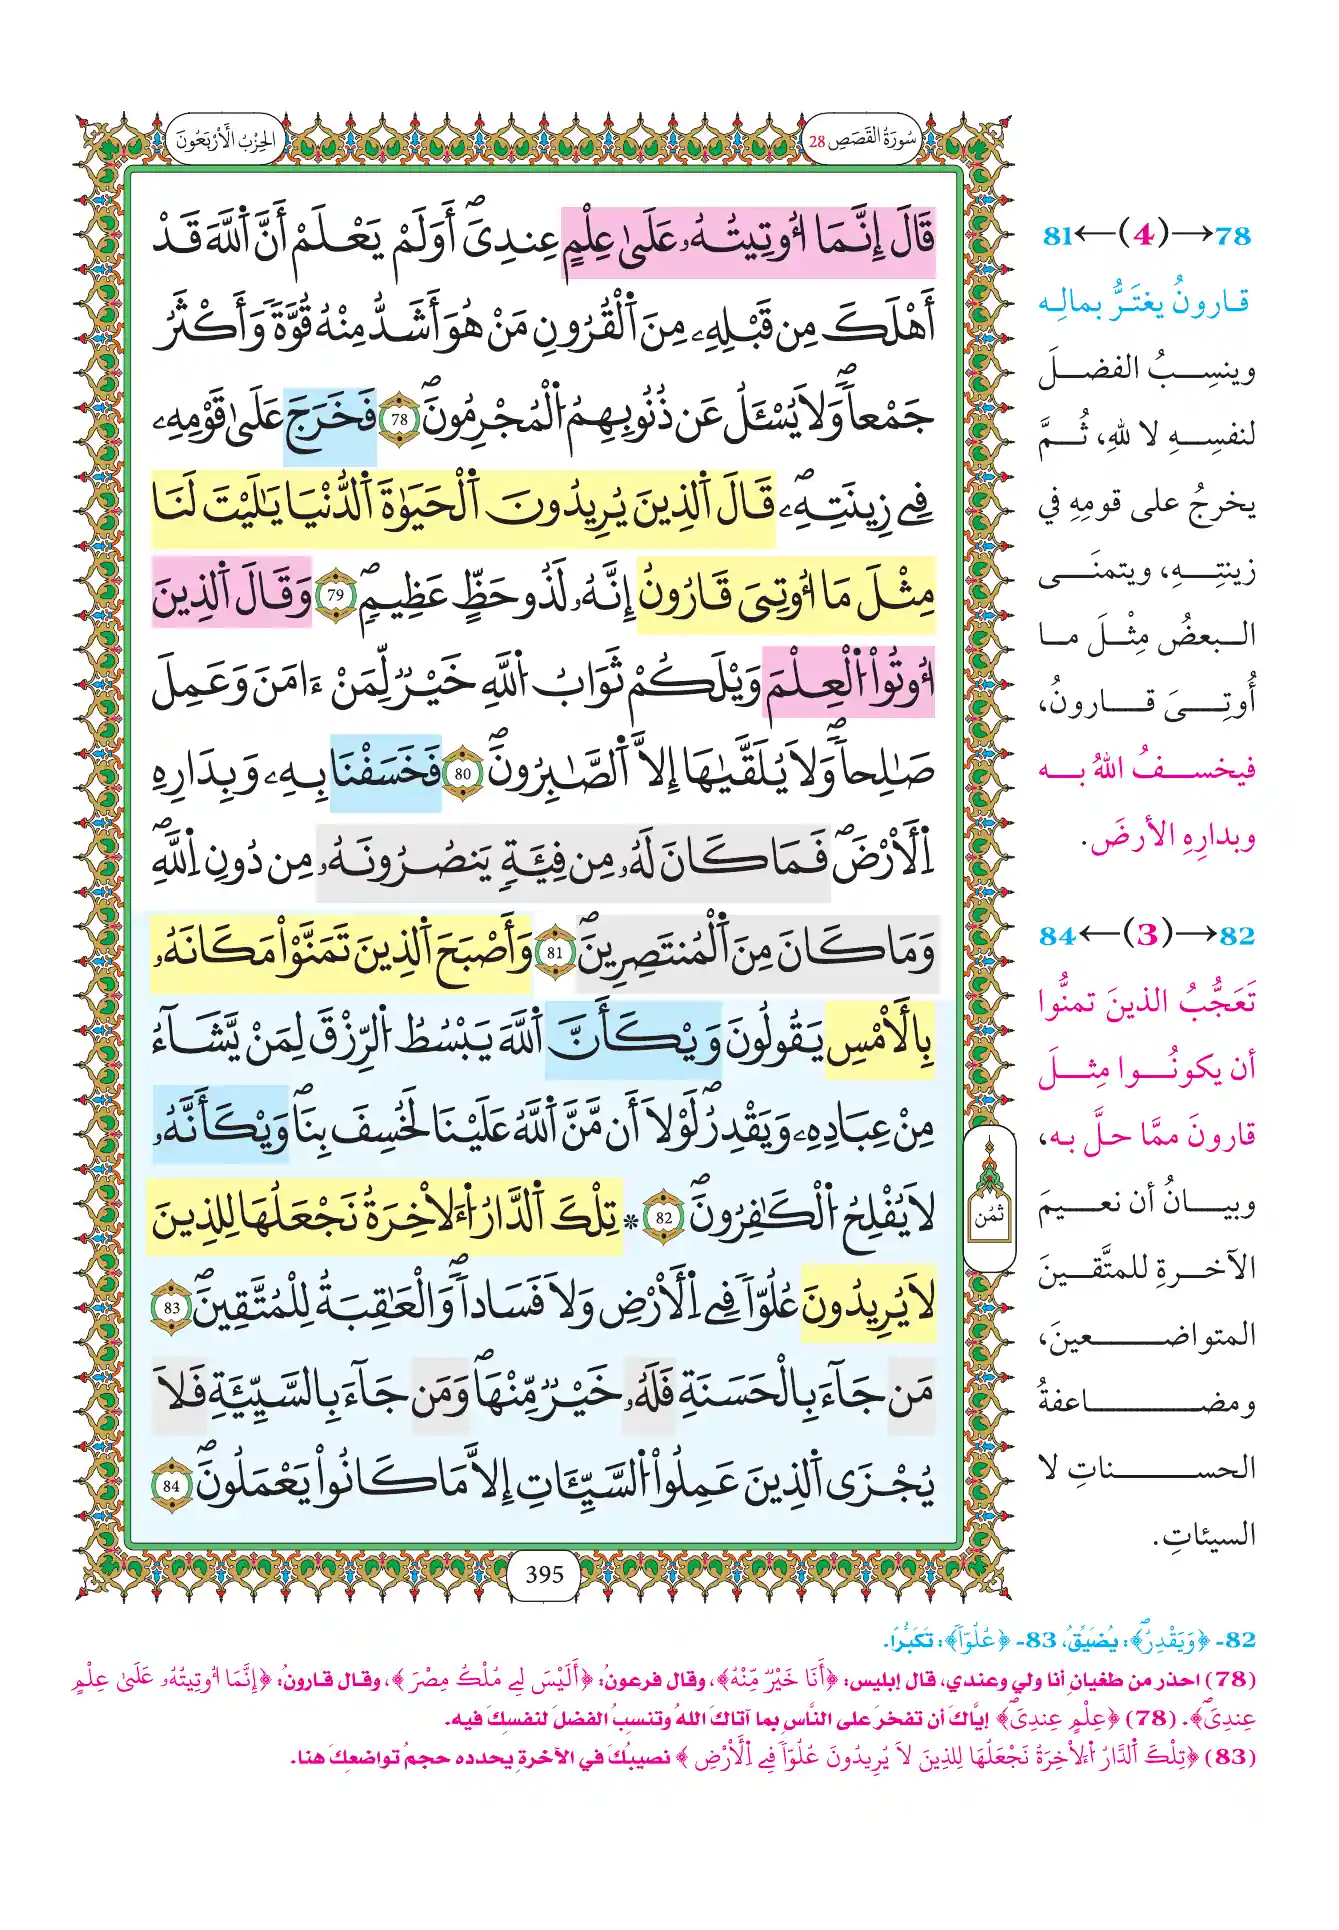 سُورَةُ القَصَصِ 28
الحِزْبُ الأَرْبَعُونَ
قَالَ إِنَّمَا أُوتِيتُهُۥ عَلَىٰ عِلْمٍ عِندِىٓۖ أَوَلَمْ يَعْلَمْ أَنَّ اَ۬للَّهَ قَدْ
أَهْلَكَ مِن قَبْلِهِۦ مِنَ اَ۬لْقُرُونِ مَنْ هُوَ أَشَدُّ مِنْهُ قُوَّةٗ وَأَكْثَرُ
جَمْعاٗۖ وَلَا يُسْـَٔلُ عَن ذُنُوبِهِمُ اُ۬لْمُجْرِمُونَۖ 78 فَخَرَجَ عَلَىٰ قَوْمِهِۦ
فِے زِينَتِهِۦۖ قَالَ اَ۬لذِينَ يُرِيدُونَ اَ۬لْحَيَوٰةَ اَ۬لدُّنْيَا يَٰلَيْتَ لَنَا
مِثْلَ مَا أُوتِىَ قَارُونُ إِنَّهُۥ لَذُو حَظٍّ عَظِيمٖۖ 79 وَقَالَ اَ۬لذِينَ
أُوتُواْ اُ۬لْعِلْمَ وَيْلَكُمْ ثَوَابُ اُ۬للَّهِ خَيْرٞ لِّمَنْ ءَامَنَ وَعَمِلَ
صَٰلِحاٗۖ وَلَا يُلَقَّىٰهَا إِلَّا اَ۬لصَّٰبِرُونَۖ 80 فَخَسَفْنَا بِهِۦ وَبِدَارِهِ
اِ۬لْأَرْضَۖ فَمَا كَانَ لَهُۥ مِن فِئَةٖ يَنصُرُونَهُۥ مِن دُونِ اِ۬للَّهِۖ
وَمَا كَانَ مِنَ اَ۬لْمُنتَصِرِينَۖ 81 وَأَصْبَحَ اَ۬لذِينَ تَمَنَّوْاْ مَكَانَهُۥ
بِالْأَمْسِ يَقُولُونَ وَيْكَأَنَّ اَ۬للَّهَ يَبْسُطُ اُ۬لرِّزْقَ لِمَنْ يَّشَآءُ
مِنْ عِبَادِهِۦ وَيَقْدِرُۖ لَوْلَا أَن مَّنَّ اَ۬للَّهُ عَلَيْنَا لَخُسِفَ بِنَاۖ وَيْكَأَنَّهُۥ
لَا يُفْلِحُ اُ۬لْكَٰفِرُونَۖ 82 * تِلْكَ اَ۬لدَّارُ اُ۬لْأٓخِرَةُ نَجْعَلُهَا لِلذِينَ
لَا يُرِيدُونَ عُلُوّاٗ فِے اِ۬لْأَرْضِ وَلَا فَسَاداٗۖ وَالْعَٰقِبَةُ لِلْمُتَّقِينَۖ 83
مَن جَآءَ بِالْحَسَنَةِ فَلَهُۥ خَيْرٞ مِّنْهَاۖ وَمَن جَآءَ بِالسَّيِّئَةِ فَلَا
يُجْزَى اَ۬لذِينَ عَمِلُواْ اُ۬لسَّيِّـَٔاتِ إِلَّا مَا كَانُواْ يَعْمَلُونَۖ 84
ثمُن
395
78→(4)←81
قارونُ يغتَرُّ بمالِه
وينسِبُ الفضلَ
لنفسِهِ لا للهِ، ثُمَّ
يخرجُ على قومِهِ في
زينتِهِ، ويتمنَى
البعضُ مِثْلَ ما
أُوتِىَ قارونُ،
فيخسفُ اللهُ به
وبدارِهِ الأرضَ.
82→(3)←84
تَعَجُّبُ الذينَ تمنُّوا
أن يكونُوا مِثلَ
قارونَ ممَّا حلَّ به،
وبيانُ أن نعيمَ
الآخرةِ للمتَّقينَ
المتواضعينَ،
ومضاعفةُ
الحسناتِ لا
السيئاتِ.
82- ﴿وَيَقْدِرُۖ﴾: يُضَيِّقُ، 83- ﴿عُلُوّاٗ﴾: تَكَبُّرًا.
(78) احذر من طغيانِ أنا ولي وعندي، قال إبليس: ﴿أَنَا خَيْرٞ مِّنْهُ﴾، وقال فرعونُ: ﴿أَلَيْسَ لِے مُلْكُ مِصْرَ﴾، وقال قارونُ: ﴿إِنَّمَا أُوتِيتُهُۥ عَلَىٰ عِلْمٍ
عِندِىٓۖ﴾. (78) ﴿عِلْمٍ عِندِىٓۖ﴾ إيَّاكَ أن تفخرَ على النَّاسِ بِما آتاكَ اللهُ وتنسِبُ الفضلَ لنفسِكَ فيه.
(83) ﴿تِلْكَ اَ۬لدَّارُ اُ۬لْأٓخِرَةُ نَجْعَلُهَا لِلذِينَ لَا يُرِيدُونَ عُلُوّاٗ فِے اِ۬لْأَرْضِ﴾ نصيبُكَ في الآخرةِ يحدده حجمُ تواضعِكَ هنا.